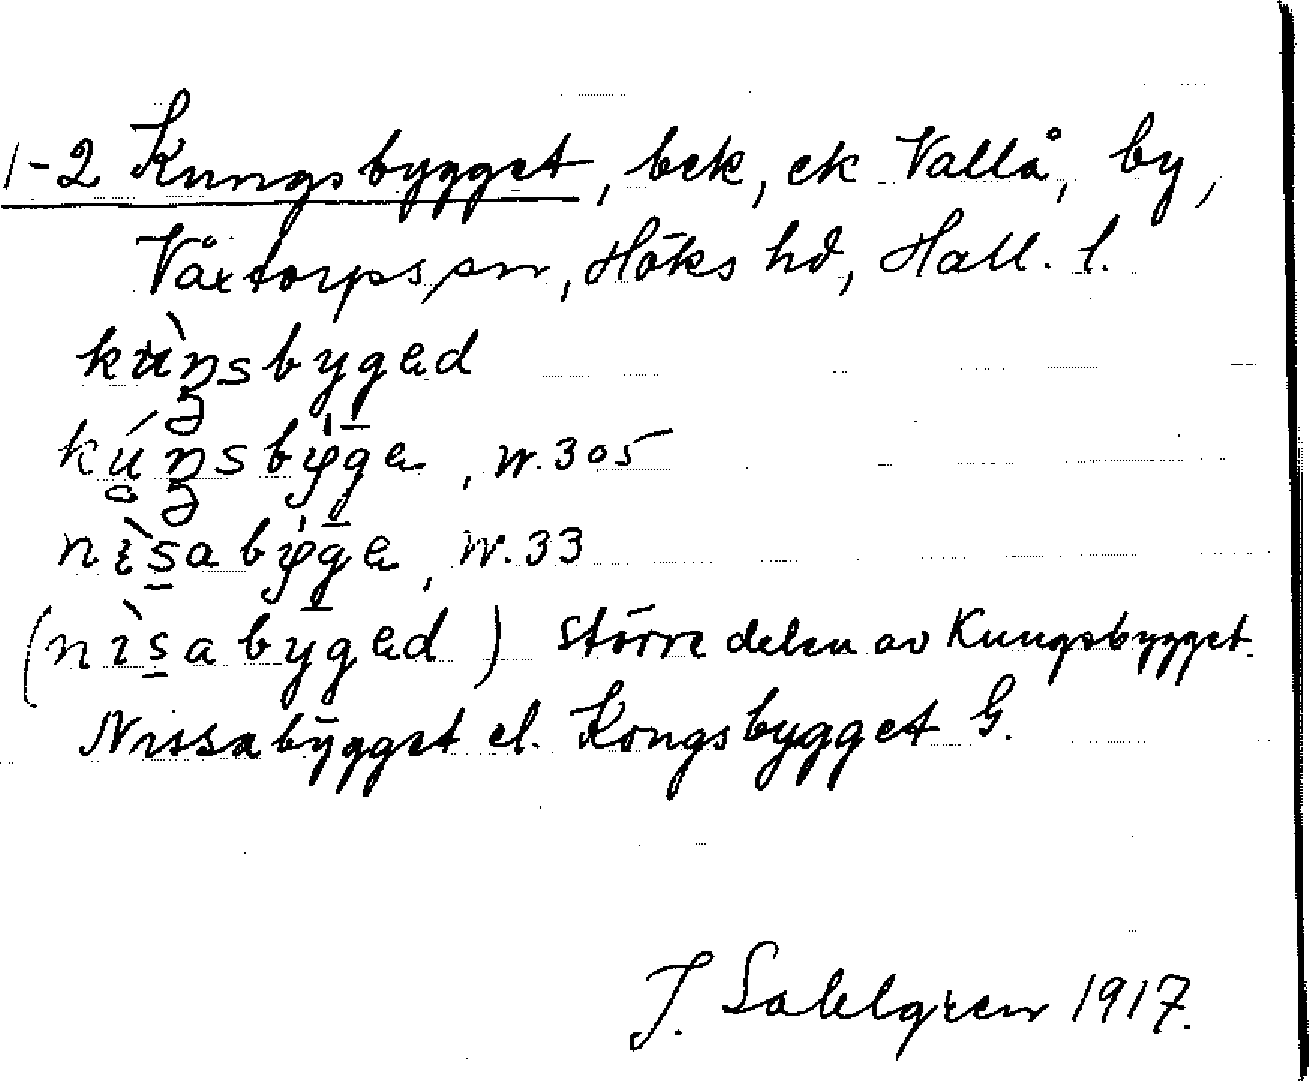 1-2 Kungsbygget, bek, ek Vallå, by,
Våxtorps sn, Höks hd, Hall. l.
kùŋsbyged
kúŋsbyge, m. 305
nìsabyge, m. 33
(nìsabyged) större delen av Kungsbygget.
Nissabygget el. Kongsbygget G.
J. Sahlgren 1917.